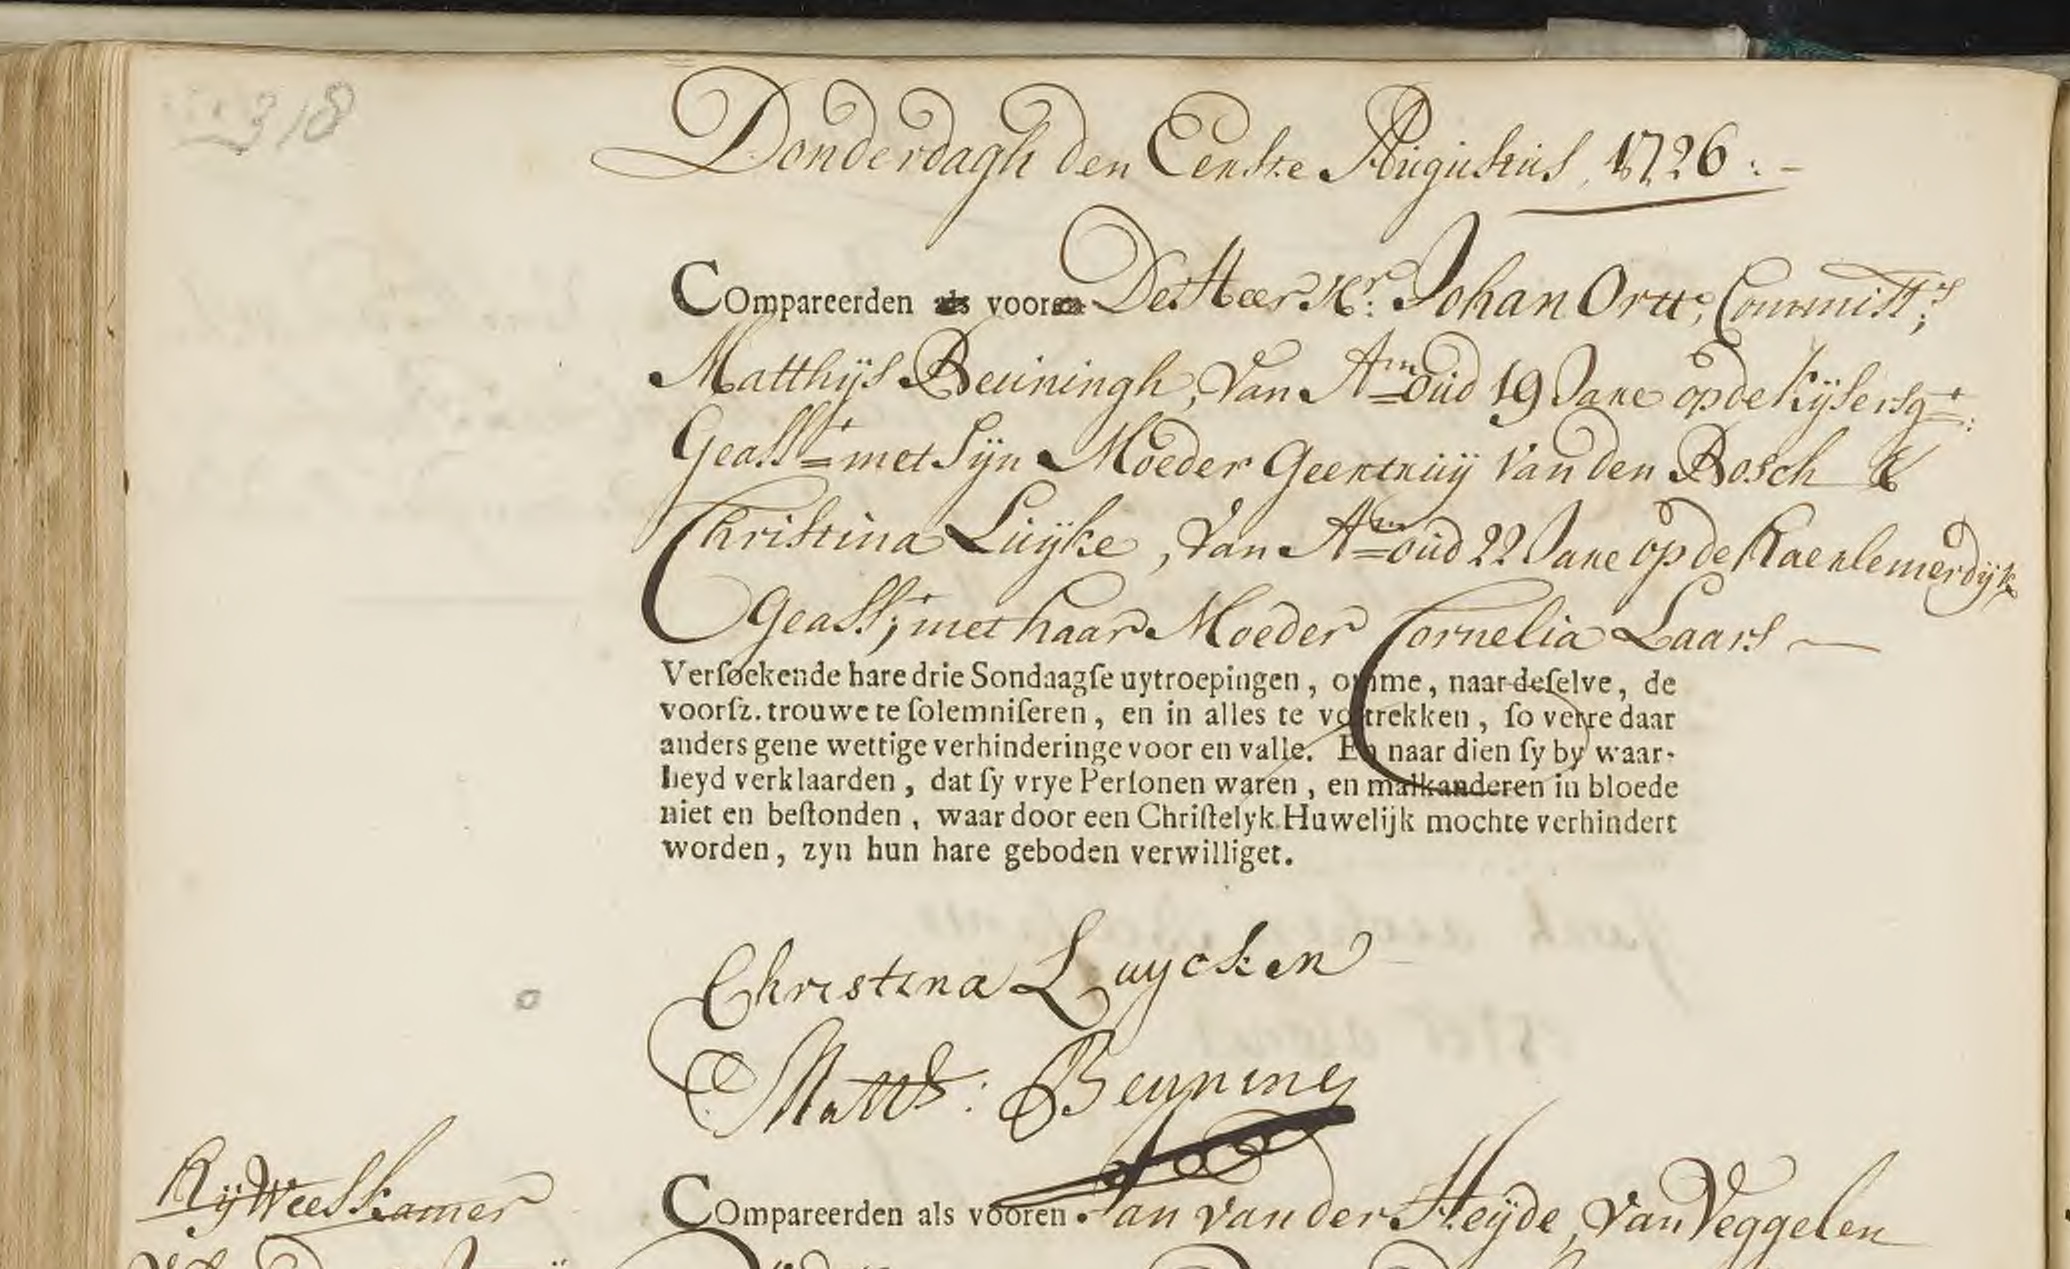 318
Donderdagh den Eerste Augustus, 1726:-
COmpareerden als vooren De Heer Mr: Johan Ortt, Committs;
Matthijs Beuningh, van Am oud 19 Jare op de Kijsersgt:
Geasst met Sijn Moeder Geertruij van den Bosch &
Christina Luijke, van Am oud 22 Jare op de Haerlemerdijk
Geasst; met haar Moeder Cornelia Laars
Verſoekende hare drie Sondaagſe uytroepingen, omme, naar deſelve, de
voorſz. trouwe te ſolemniſeren, en in alles te voltrekken, ſo verre daar
anders gene wettige verhinderinge voor en valle. En naar dien ſy by waar-
heyd verklaarden, dat ſy vrye Perſonen waren, en malkanderen in bloede
niet en beſtonden, waar door een Chriſtelyk Huwelijk mochte verhindert
worden, zyn hun hare geboden verwilliget.
Christina Luycken
Matts: Beuning
Rij Weeskamer
COmpareerden als vooren Jan van der Heijde, van Veggelen